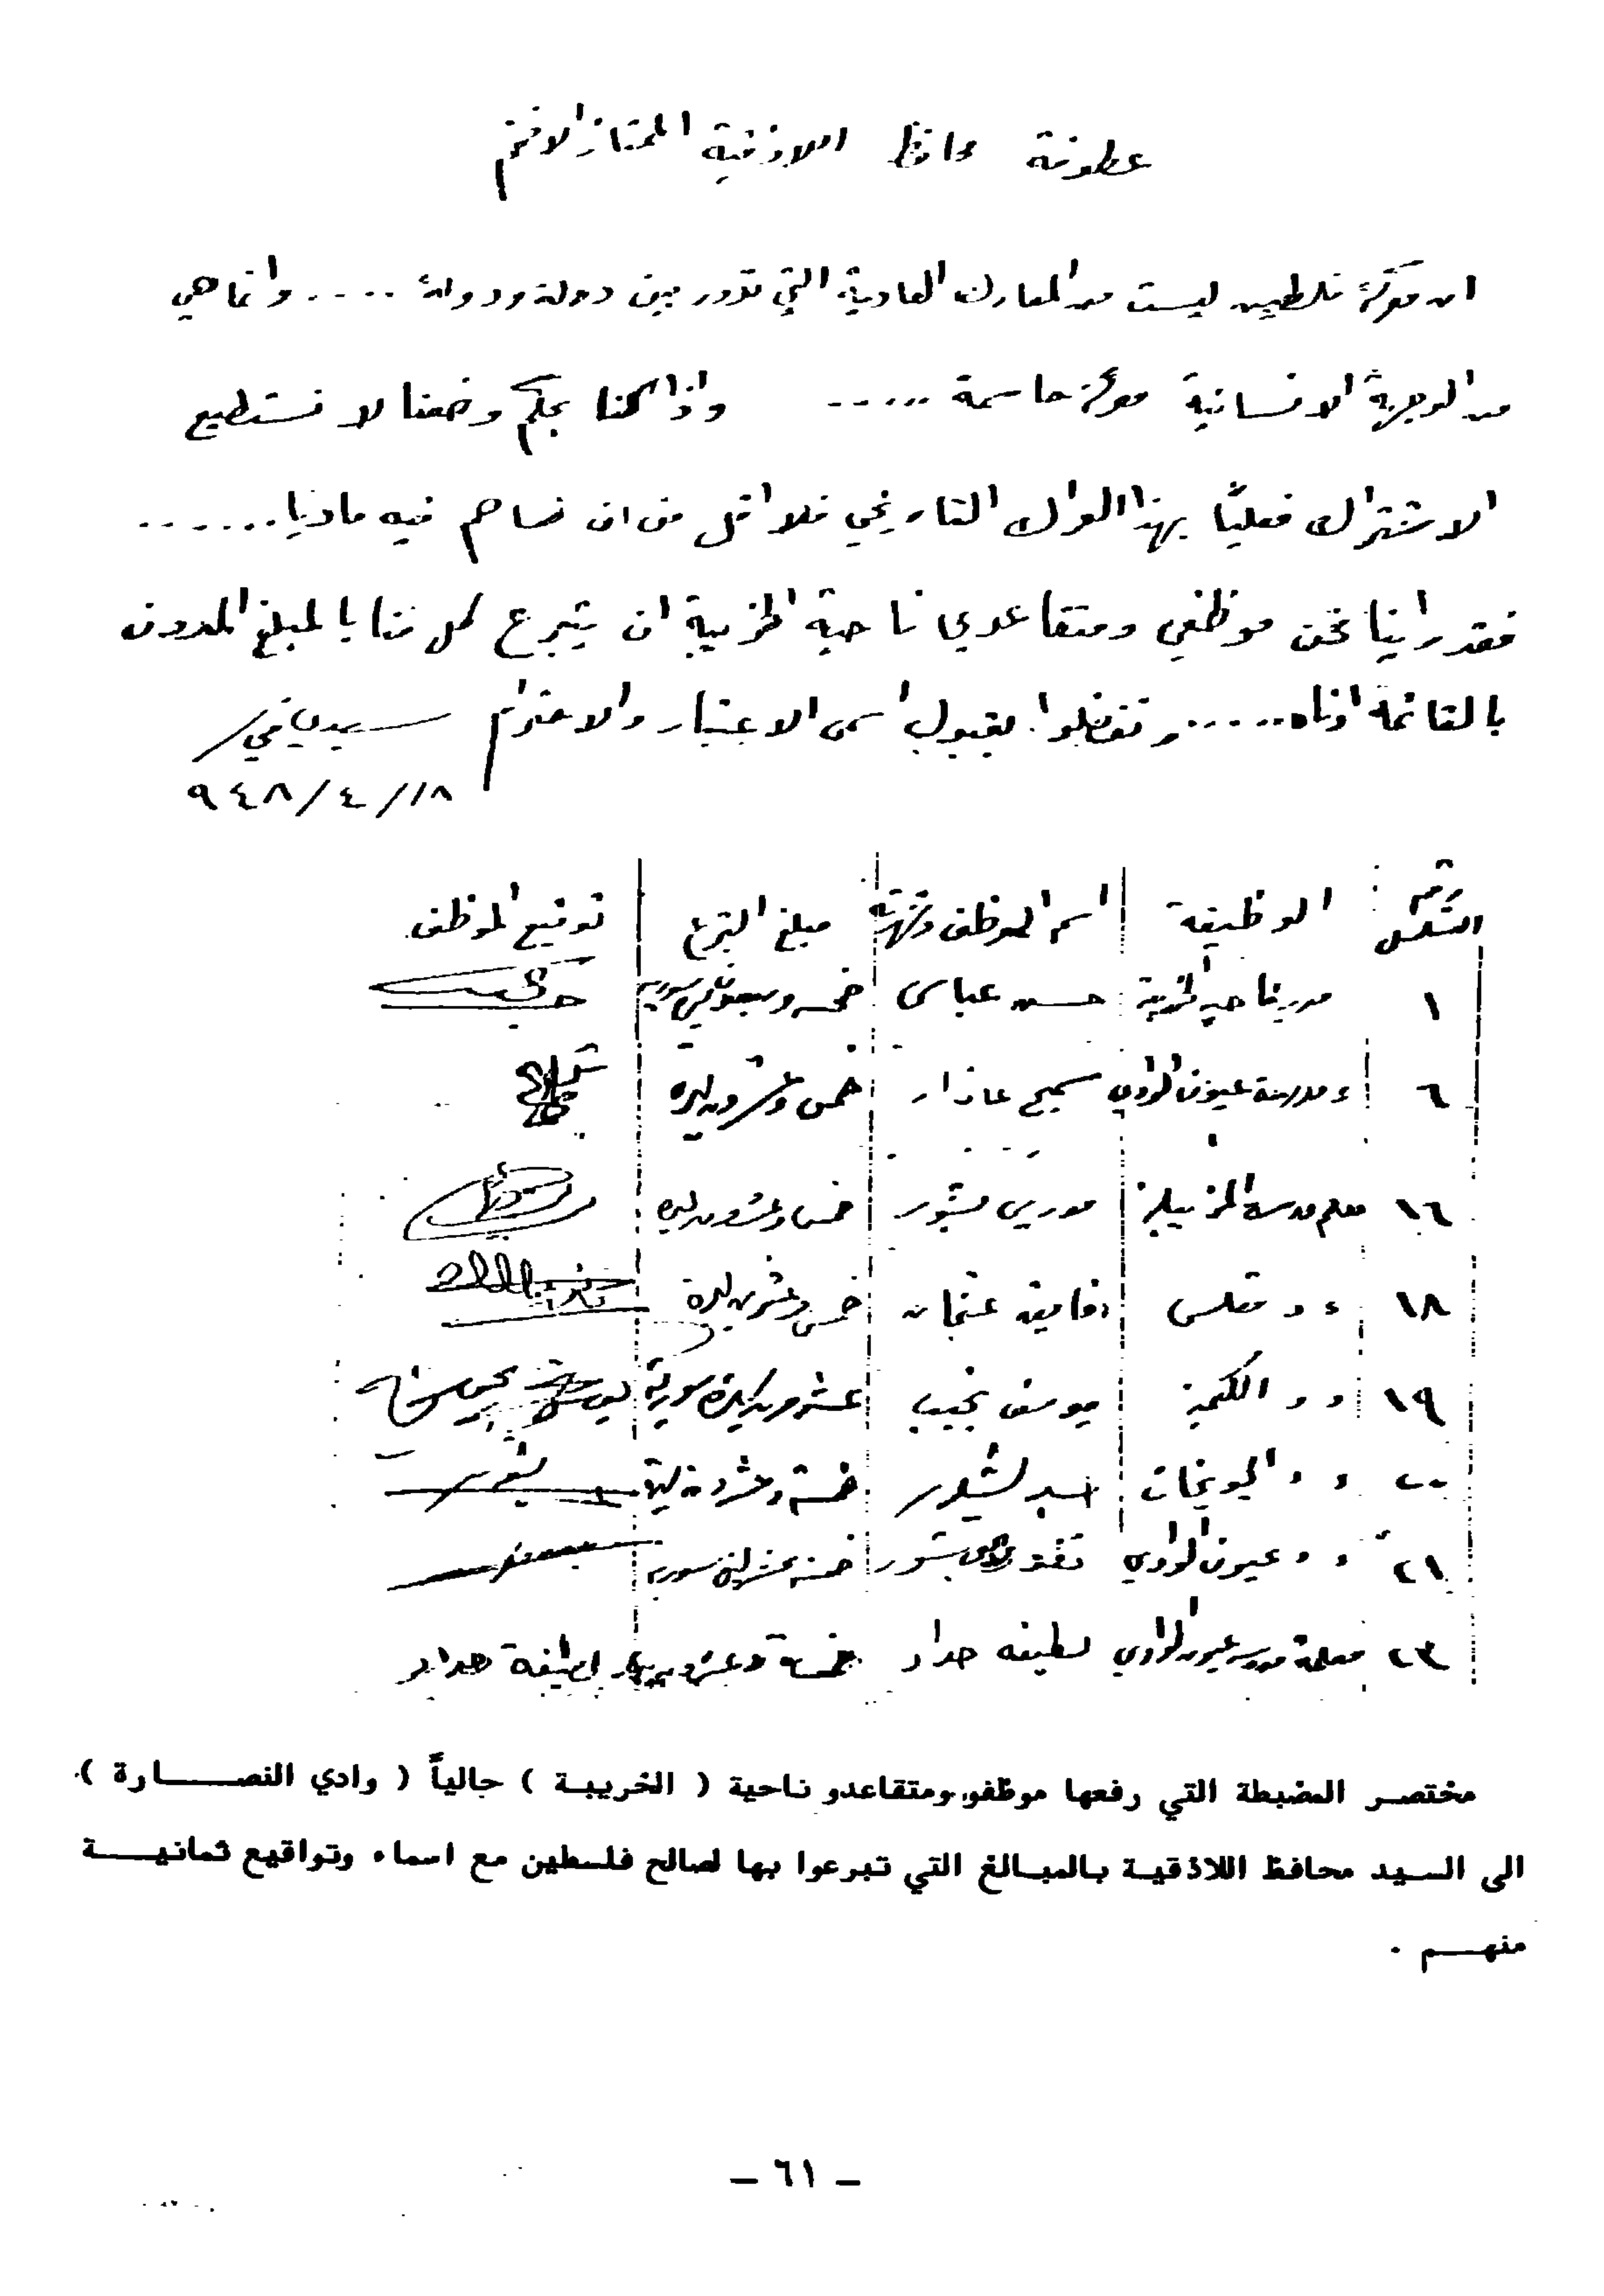 عطوفة محافظ اللاذقية الممتاز الافخم
ان معركة فلسطين ليست من المعارك العادية التي تدور بين دولة ودولة .... وانما هي
من الوجهة الانسانية معركة حاسمة ..... واذا كنا بحكم وضعنا لا نستطيع
الاشتراك فعليًا بهذا العراك التاريخي فلا اقل من ان نساهم فيه ماديا......
فقد راينا نحن موظفي ومتقاعدي ناحية الخريبة ان يتبرع كل منا بالمبلغ المدون
بالقائمة ادناه..... وتفضلوا بقبول اسمى الاعتبار والاحترام سيدي في/
١٨/٤/٩٤٨
رقم التسلسل الوظيفة اسم الموظف وشهرته مبلغ التبرع توقيع الموظف
١ مدير ناحية الخريبة حسن عباس خمسه وسبعون ليره سوريه
٦ مدرسة عيون الوادي سميح عازار خمس وعشرون ليره
١٦ معلم مدرسة المزينة موريس بشور خمس وعشرون ليره
١٨ ء ء مقلس عثمان خمس وعشرين ليرة
١٩ ء ء الكيمة يوسف نجيب عشرون ليرة سورية
٢٠ ء ء الجويخات اسبر بشور خمسة وعشرون ليرة
٢١ ء ء عيون الوادي بشور خمسه عشر ليره سوريه
٢٣ معلمة مدرسة عيون الوادي لطيفه حداد خمسة وعشرون ليرة لطيفة حداد
مختصر المضبطة التي رفعها موظفو ومتقاعدو ناحية ( الخريبة ) جالياً ( وادي النصارة ).
الى السيد محافظ اللاذقية بالمبالغ التي تبرعوا بها لصالح فلسطين مع اسماء وتواقيع ثمانية
منهم .
– ٦١ –